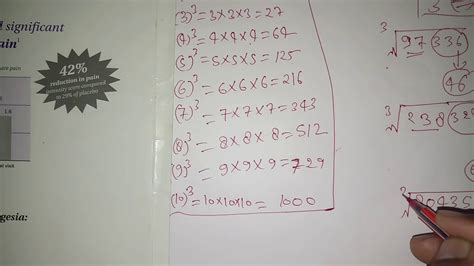 significant
ain'
42%
reduction in pain
intensity score compared
to 29% of placebo
1.8
gesia:
(3)³ = 3×3×3 = 27
(4)³ = 4×4×4 = 64
(5)³ = 5×5×5 = 125
(6)³ = 6×6×6 = 216
(7)³ = 7×7×7 = 343
(8)³ = 8×8×8 = 512
(9)³ = 9×9×9 = 729
(10)³ = 10×10×10 = 1000
³√97 336
46
³√238 32